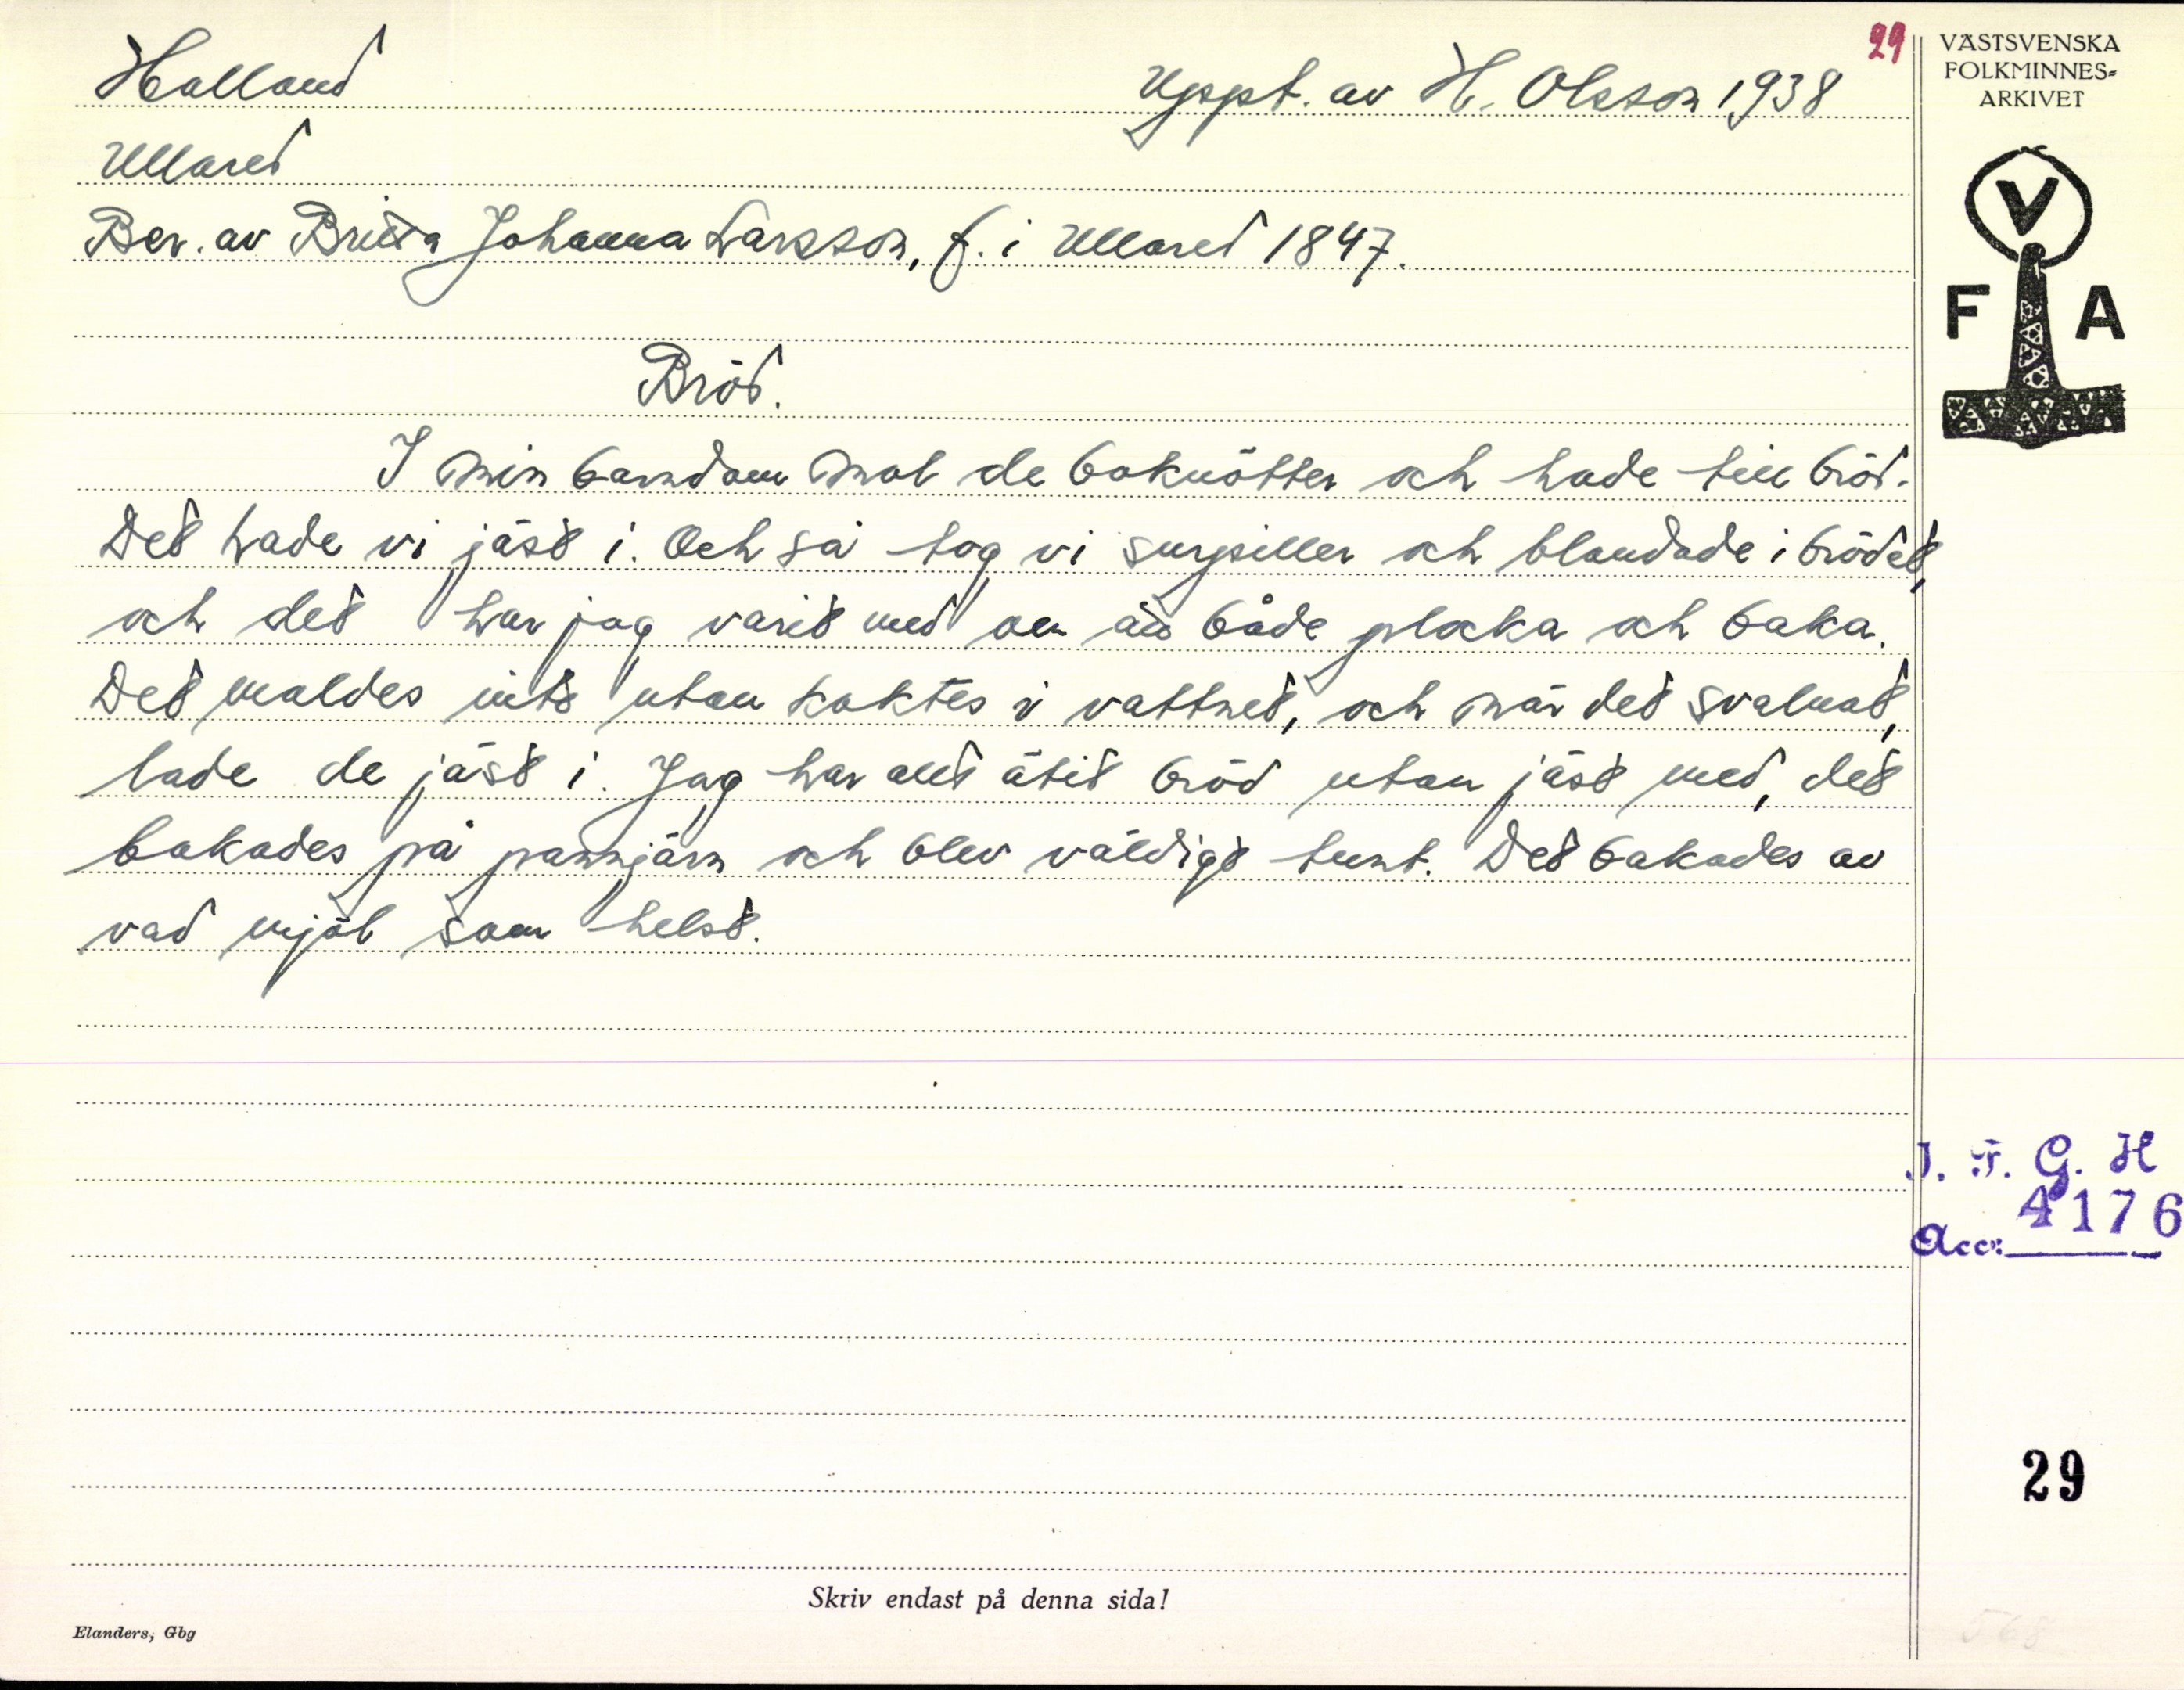 29
Halland
Uppt. av H. Olsson 1938
Ullared
Ber. av Britta Johanna Larsson, f. i Ullared 1847.
Bröd.
I min barndom mol de boknötter och hade till bröd.
Det hade vi jäst i. Och så tog vi surpiller och blandade i brödet,
och det har jag varit med om att både plocka och baka.
Det maldes inte utan koktes i vattnet, och när det svalnat,
lade de jäst i. Jag har allt ätit bröd utan jäst med, det
bakades på pannjärn och blev väldigt tunt. Det bakades av
vad mjöl som helst.
VÄSTSVENSKA
FOLKMINNES-
ARKIVET
V
F A
I. F. G. H
4176
Acc:
29
568
Skriv endast på denna sida!
Elanders, Gbg